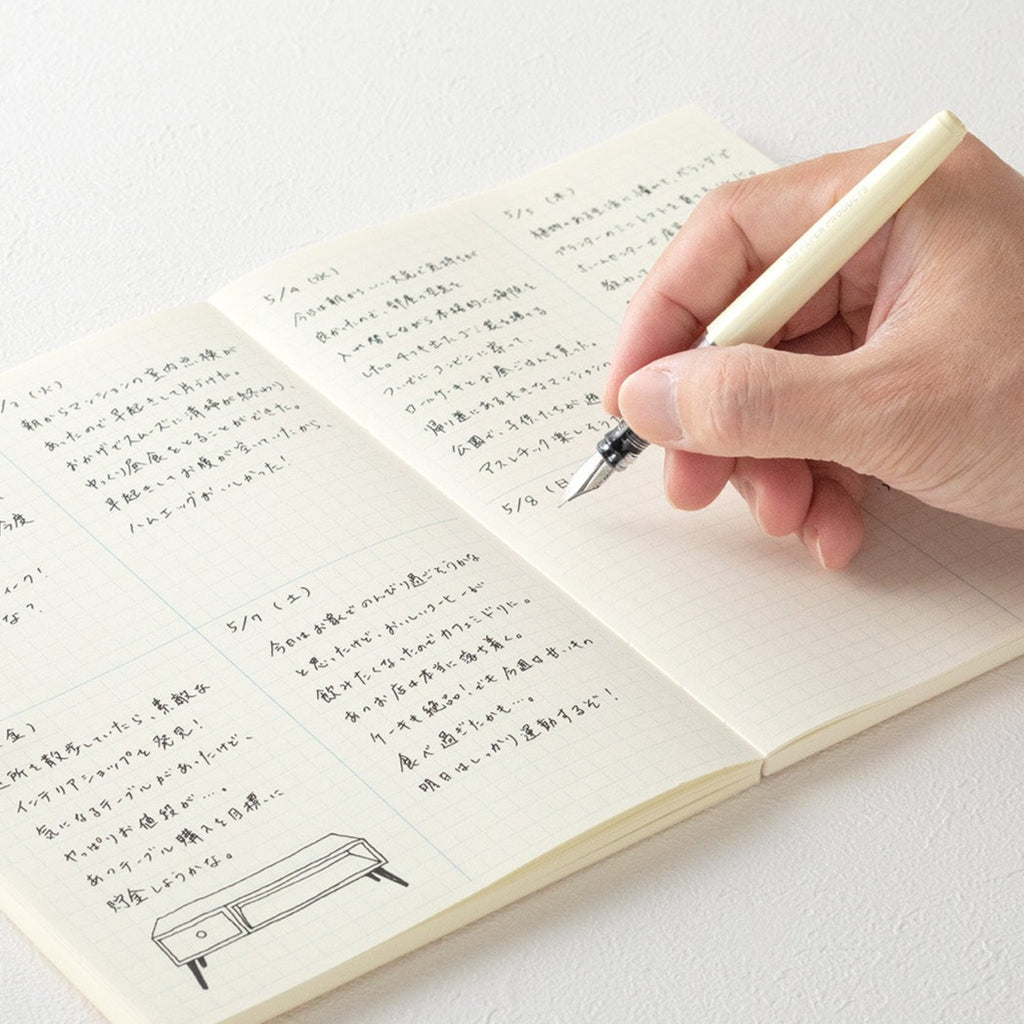 /3 (火)
朝からマンションの室内点検が
あったので早起きして片づけた。
おかげでスムーズに清掃が終わり、
ゆっくり昼食をとることができた。
早起きしてお腹が空いていたから、
ハムエッグおいしかった!
今度
ィーク!
な?
金)
近所を散歩していたら、素敵な
インテリアショップを発見!
気になるテーブルがあったけど、
やっぱりお値段が…。
あのテーブル購入を目標に
貯金しようかな。
5/7 (土)
今日はお家でのんびり過ごそうかな
と思ったけど、おいしいコーヒーが
飲みたくなったのでカフェミドリに。
あのお店は本当に落ち着く。
ケーキも絶品!でも今週は甘いもの
食べ過ぎたかも…。
明日はしっかり運動するぞ!
5/4 (水)
今日は朝からいい天気で気持ちが
良かったので、部屋の空気を
入れ替えながら本格的に掃除を
した。4つも出たゴミ袋を捨てる
ついでにコンビニに寄って、
ロールケーキとお昼ごはんを買った。
帰り道にある大きなマンション
公園で、子供たちが遊
アスレチック楽しそう
5/5 (木)
植物のある生活に憧れて、ベランダで
プランターのミニトマトを育て
ホームセンターで
教わって
5/8 (日
MD PAPER PRODUCTS